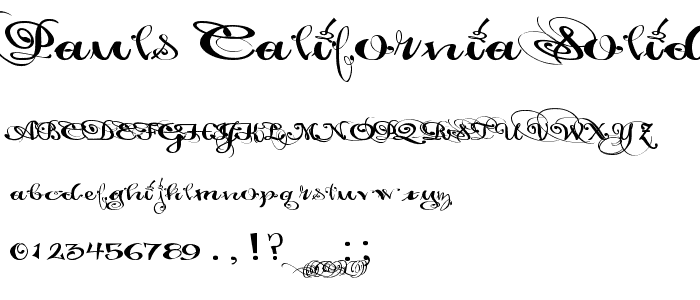 Pauls California Solid
ABCDEFGHIJKLMNOPQRSTUVWXYZ
abcdefghijklmnopqrstuvwxyz
0123456789 .,!? :;